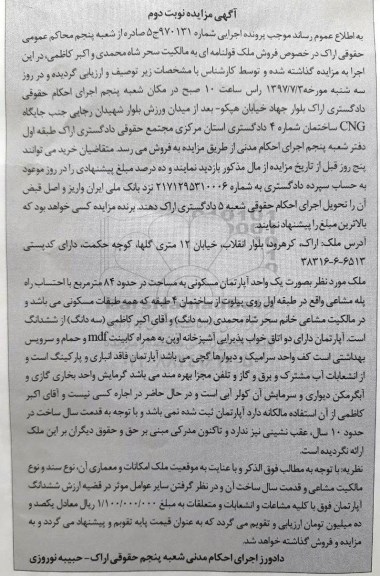 آگهی مزایده نوبت دوم
به اطلاع عموم رساند موجب پرونده اجرایی شماره ۹۷۰۱۳۱-۵ صادره از شعبه پنجم محاکم عمومی
حقوقی اراک در خصوص فروش ملک قولنامه ای به مالکیت سحر شاه محمدی و اکبر کاظمی، در این
اجرا به مزایده گذاشته شده و توسط کارشناس با مشخصات زیر توصیف و ارزیابی گردیده و در روز
سه شنبه مورخه ۱۳۹۷/۷/۳ راس ساعت ۱۰ صبح در مکان شعبه پنجم اجرای احکام حقوقی
دادگستری اراک بلوار جهاد خیابان هپکو- بعد از میدان ورزش بلوار شهیدان رجایی جنب جایگاه
CNG ساختمان شماره ۴ دادگستری استان مرکزی مجتمع حقوقی دادگستری اراک طبقه اول
دفتر شعبه پنجم اجرای احکام مدنی از طریق مزایده به فروش می رسد. متقاضیان خرید می توانند
پنج روز قبل از تاریخ مزایده از مال مذکور بازدید نمایند و ده درصد مبلغ پیشنهادی را در روز موعود
به حساب سپرده دادگستری به شماره ۲۱۷۱۲۹۵۳۱۰۰۰۶ نزد بانک ملی ایران واریز و اصل فیض
آن را تحویل اجرای احکام حقوقی شعبه ۵ دادگستری اراک دهند. برنده مزایده کسی خواهد بود که
بالاترین مبلغ را پیشنهاد نمایند.
آدرس ملک: اراک، کرهرود، بلوار انقلاب، خیابان ۱۲ متری گلها، کوچه حکمت، دارای کدپستی
۳۸۳۱۶-۶-۶۵۱۳
ملک مورد نظر بصورت یک واحد آپارتمان مسکونی به مساحت در حدود ۸۴ مترمربع با احتساب راه
پله مشاعی واقع در طبقه اول روی پیلوت از ساختمان ۴ طبقه که همه طبقات مسکونی می باشد و
در مالکیت مشاعی خانم سحر شاه محمدی (سه دانگ) و آقای اکبر کاظمی (سه دانگ) از ششدانگ
است. آپارتمان دارای دو اتاق خواب پذیرایی آشپزخانه اوپن به همراه کابینت mdf و حمام و سرویس
بهداشتی است کف واحد سرامیک و دیوارها گچی می باشد آپارتمان فاقد انباری و پارکینگ است و
از انشعابات آب مشترک و برق و گاز و تلفن مجزا بهره مند می باشد گرمایش واحد بخاری گازی و
آبگرمکن دیواری و سرمایش آن کولر آبی است و در حال حاضر در اجاره کسی نیست و آقای اکبر
کاظمی از آن استفاده مالکانه دارد آپارتمان ثبت شده نمی باشد و با توجه به قدمت سال ساخت در
حدود ۱۰ سال، عقب نشینی نیز ندارد و تاکنون مدرکی مبنی بر حق و حقوق دیگران بر این ملک
ارائه نگردیده است.
نظریه: با توجه به مطالب فوق الذکر و با عنایت به موقعیت ملک امکانات و معماری آن، نوع سند و نوع
مالکیت مشاعی و قدمت سال ساخت آن و در نظر گرفتن سایر عوامل موثر در قضیه ارزش ششدانگ
آپارتمان فوق با کلیه مشاعات و انشعابات و متعلقات به مبلغ ۱/۱۰۰/۰۰۰/۰۰۰ ریال معادل یکصد و
ده میلیون تومان ارزیابی و تقویم می گردد که به عنوان قیمت پایه تقویم و پیشنهاد می گردد و به
مزایده و فروش گذاشته خواهد شد.
دادورز اجرای احکام مدنی شعبه پنجم حقوقی اراک - حبیبه نوروزی